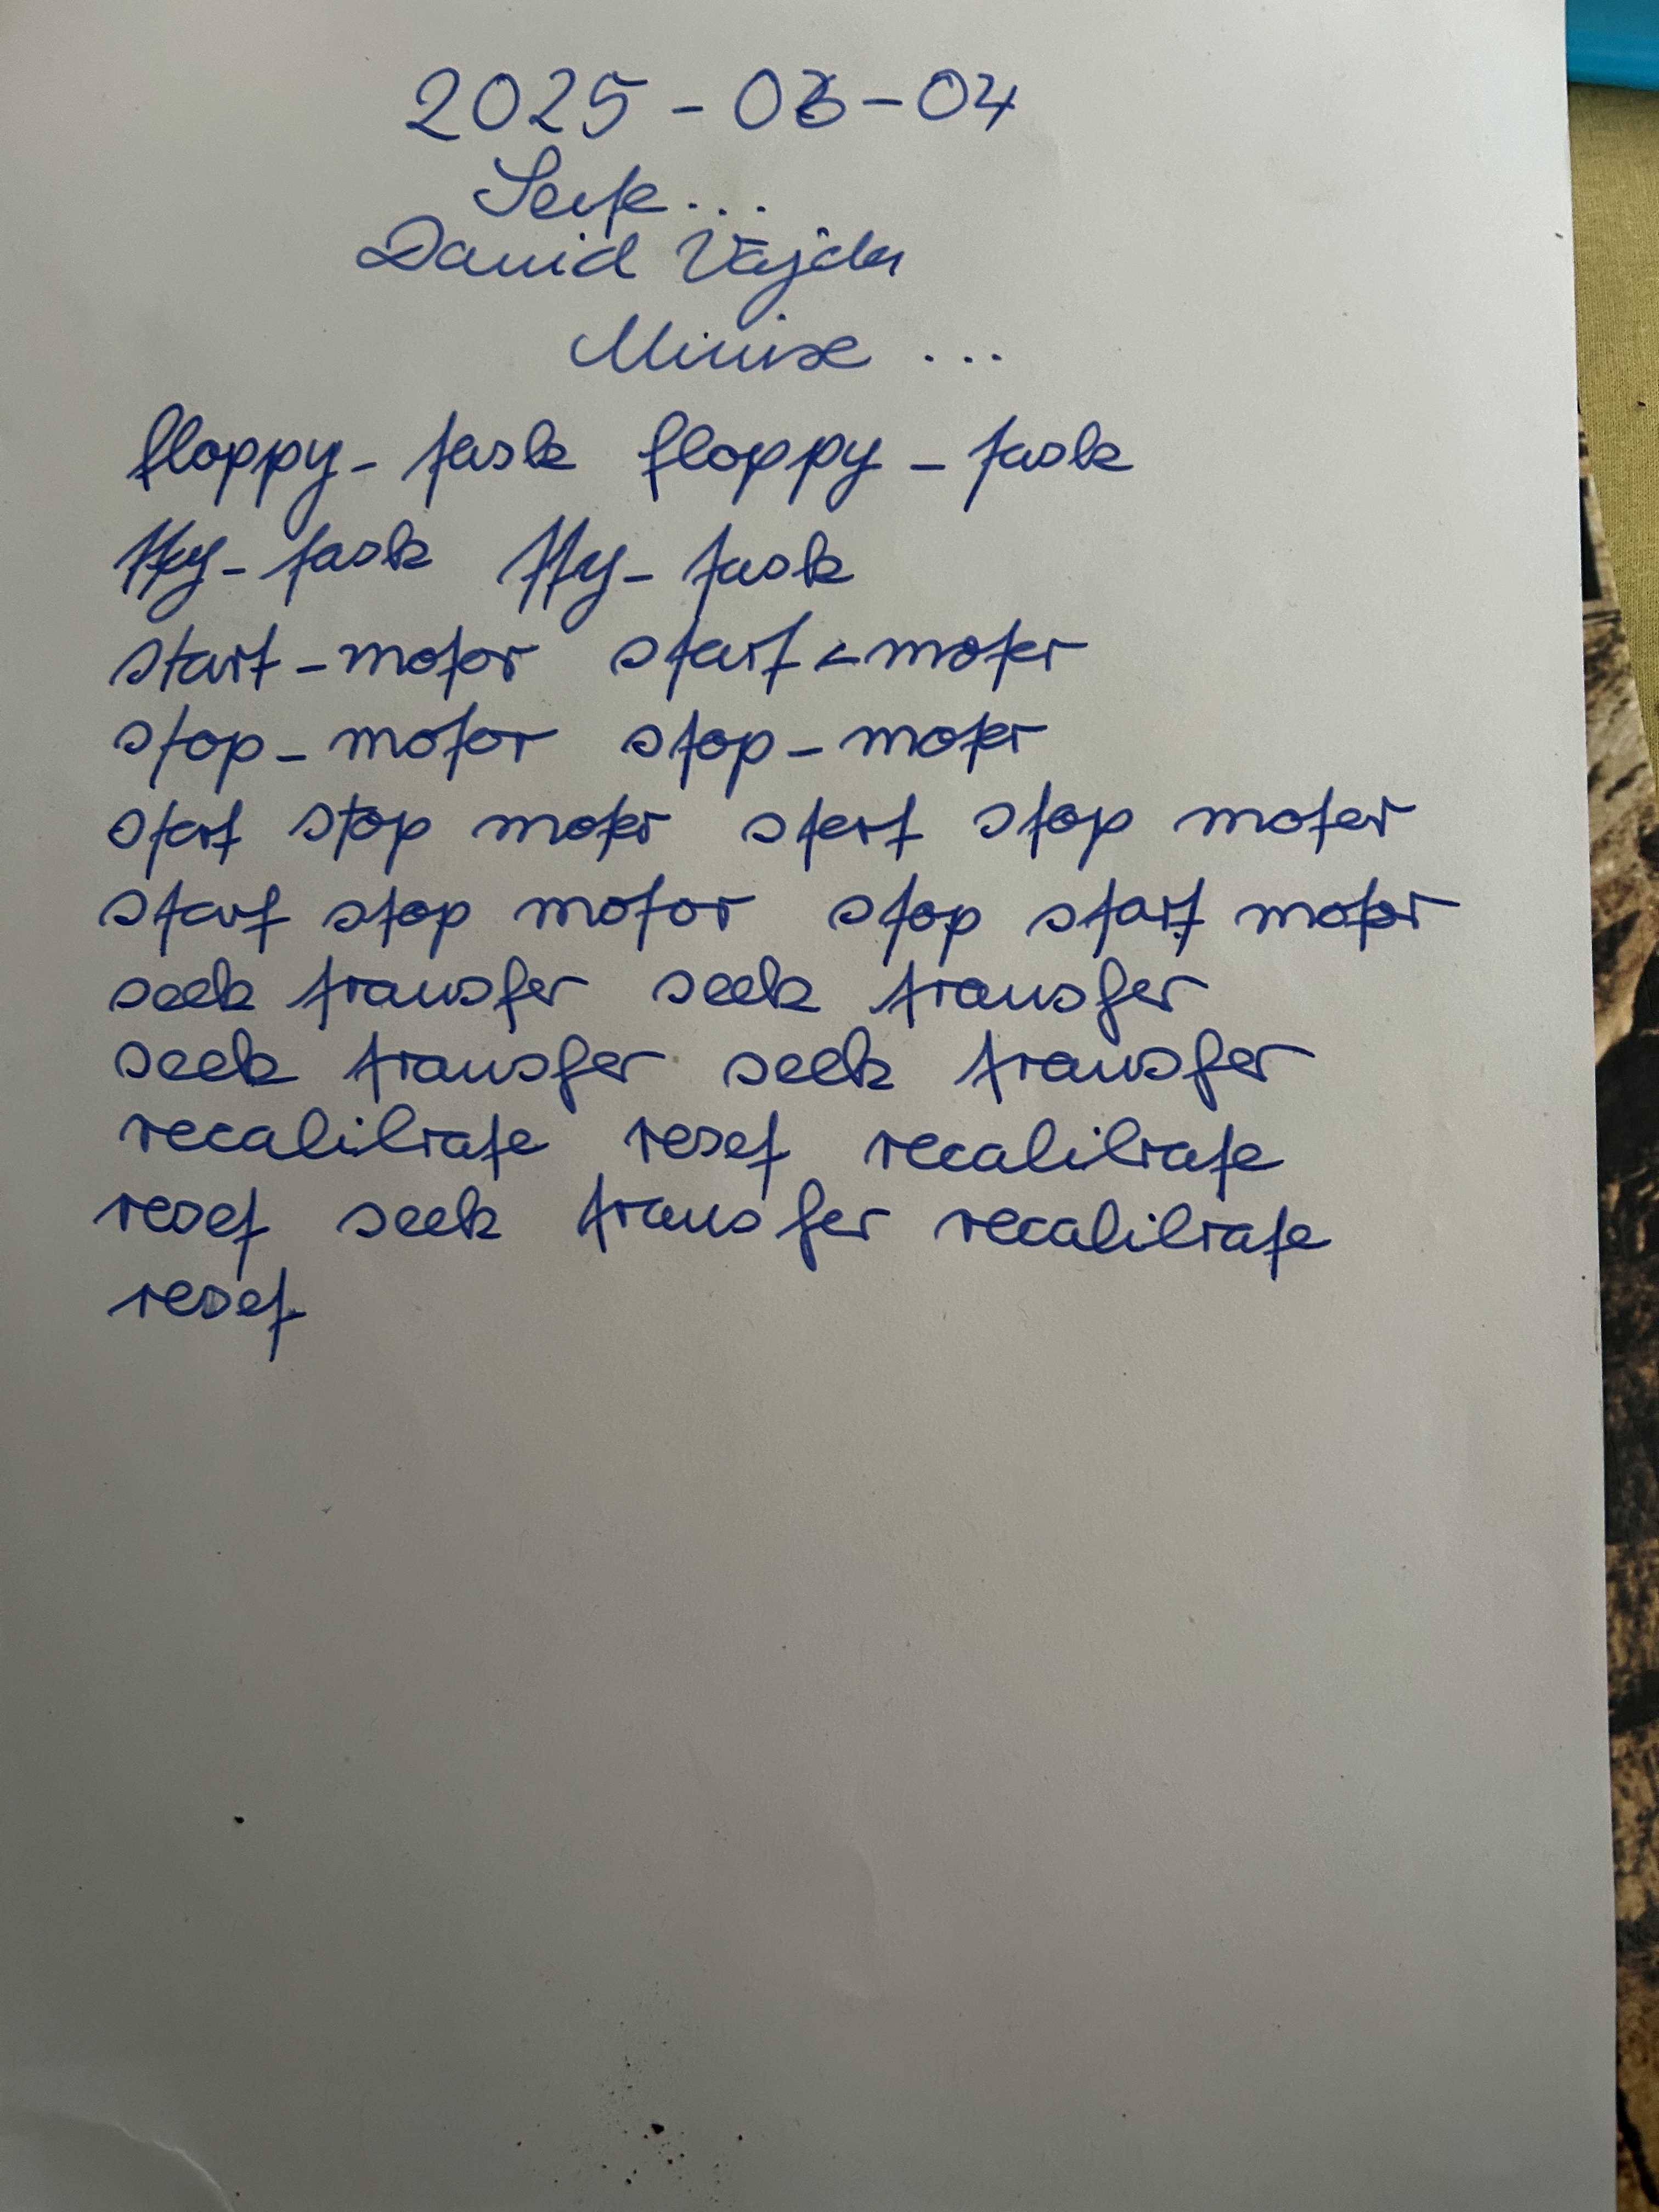 2025-03-04
Seite...
David Vajda
Minix ...
floppy_task floppy_task
tty_task tty_task
start_motor start_motor
stop_motor stop_motor
start stop motor start stop motor
start stop motor stop start motor
seek transfer seek transfer
seek transfer seek transfer
recalibrate reset recalibrate
reset seek transfer recalibrate
reset